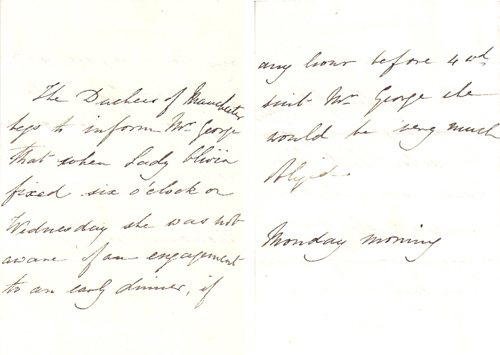 The Duchess of Manchester
begs to inform Mr. George
that when Lady Olivia
fixed six o'clock on
Wednesday she was not
aware of an engagement
to an early dinner, if
any hour before 4 wd
suit Mr. George she
would be very much
Monday morning